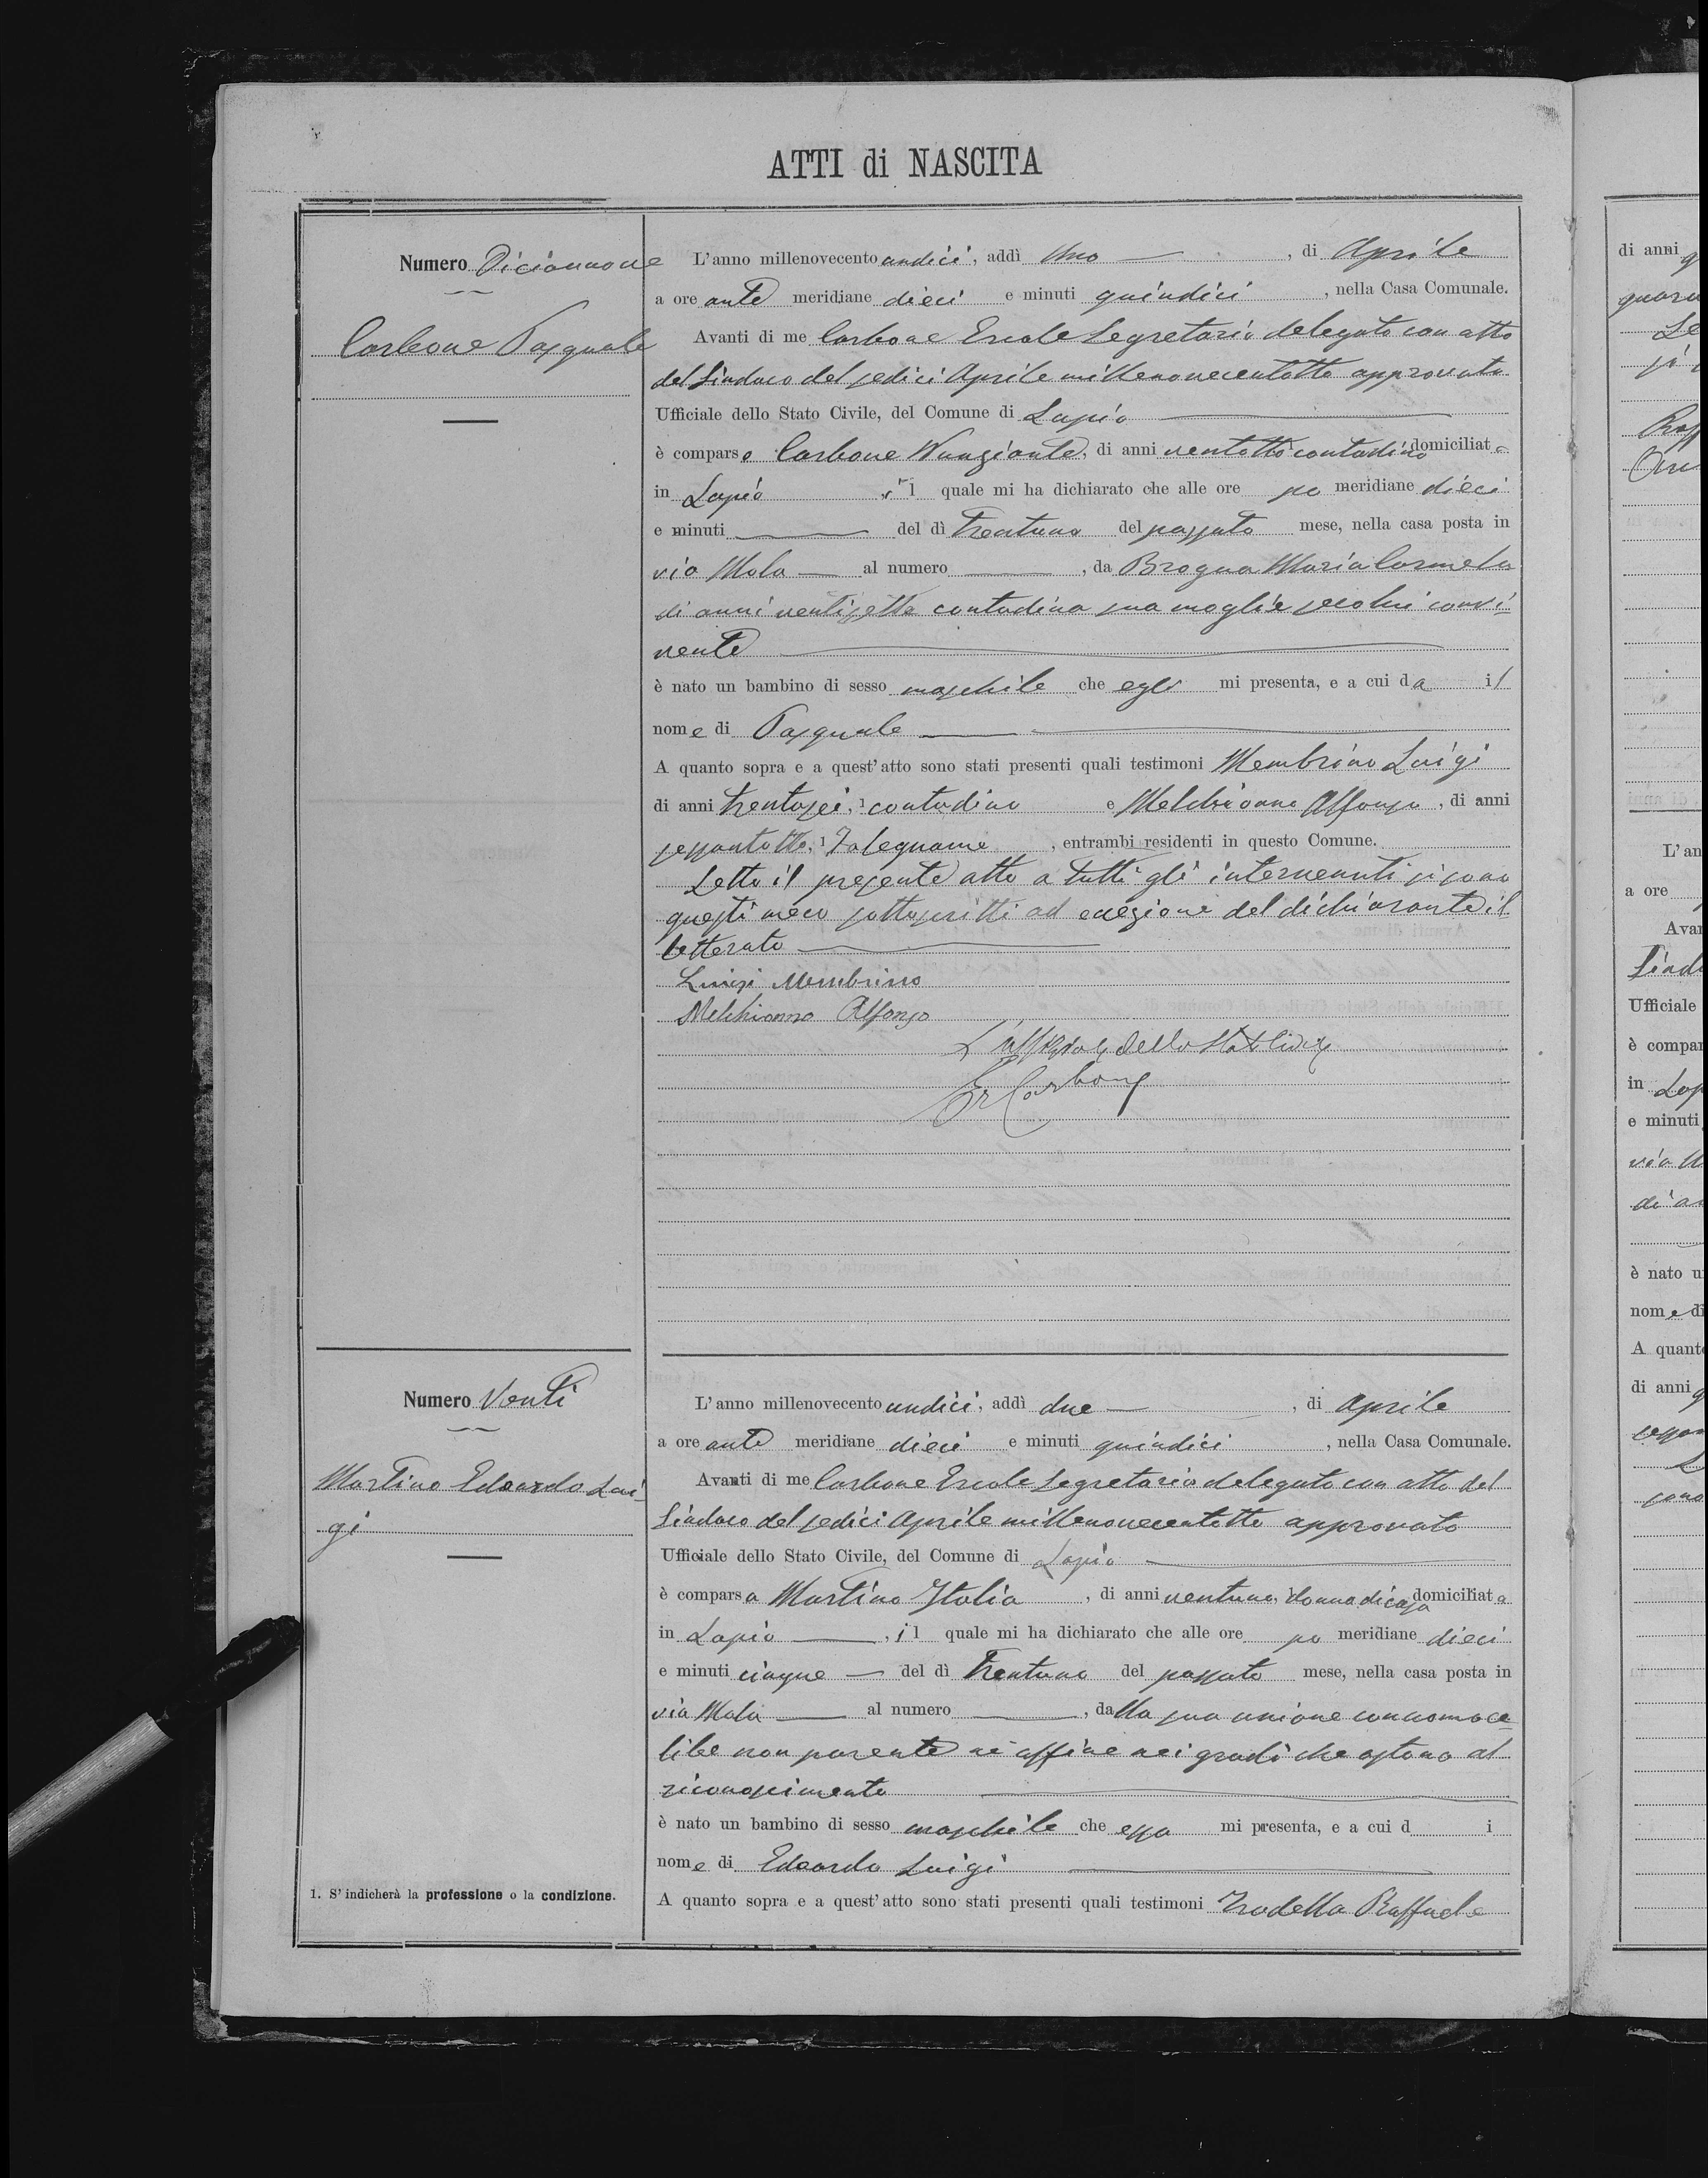 ATTI di NASCITA
Numero Diciannove
Carbone Pasquale
L'anno millenovecento undici, addì Uno, di Aprile
a ore ante meridiane dieci e minuti quindici, nella Casa Comunale.
Avanti di me Carbone Ercole Segretario delegato con atto
del Sindaco del sedici Aprile millenovecentotto approvato
Ufficiale dello Stato Civile, del Comune di Lapio
è comparso Carbone Nunziante, di anni ventotto, 1 contadino domiciliato
in Lapio, il quale mi ha dichiarato che alle ore po meridiane dieci
e minuti — del dì trentuno del passato mese, nella casa posta in
via Mola — al numero —, da Brogna Maria Carmela
di anni ventisette contadina sua moglie secolui convi-
vente
è nato un bambino di sesso maschile che egli mi presenta, e a cui da il
nome di Pasquale
A quanto sopra e a quest'atto sono stati presenti quali testimoni Membrino Luigi
di anni trentasei, 1 contadino e Melchionno Alfonso, di anni
sessantotto, 1 Falegname, entrambi residenti in questo Comune.
Letto il presente atto a tutti gli intervenuti si sono
questi meco sottoscritti ad eccezione del dichiarante il-
letterato
Luigi Membrino
Melchionno Alfonso
L'uffiziale dello Stato Civile
Er Carbone
Numero Venti
Martino Edoardo Lui-
gi
L'anno millenovecento undici, addì due —, di Aprile
a ore ante meridiane dieci e minuti quindici, nella Casa Comunale.
Avanti di me Carbone Ercole Segretario delegato con atto del
Sindaco del sedici Aprile millenovecentotto approvato
Ufficiale dello Stato Civile, del Comune di Lapio
è comparsa Martino Italia, di anni ventuno, 1 donna di casa domiciliata
in Lapio —, il quale mi ha dichiarato che alle ore po meridiane dieci
e minuti cinque — del dì trentuno del passato mese, nella casa posta in
via Mola — al numero —, dalla sua unione con uomo ce-
libe non parente nè affine nei gradi che ostano al
riconoscimento
è nato un bambino di sesso maschile che essa mi presenta, e a cui d i
nome di Edoardo Luigi
A quanto sopra e a quest'atto sono stati presenti quali testimoni Trodella Raffaele
1. S'indicherà la professione o la condizione.
di anni
L'an
a ore
Avan
Sind
Ufficiale
è compar
in Lap
e minuti
via M
di an
è nato u
nome di
A quant
di anni